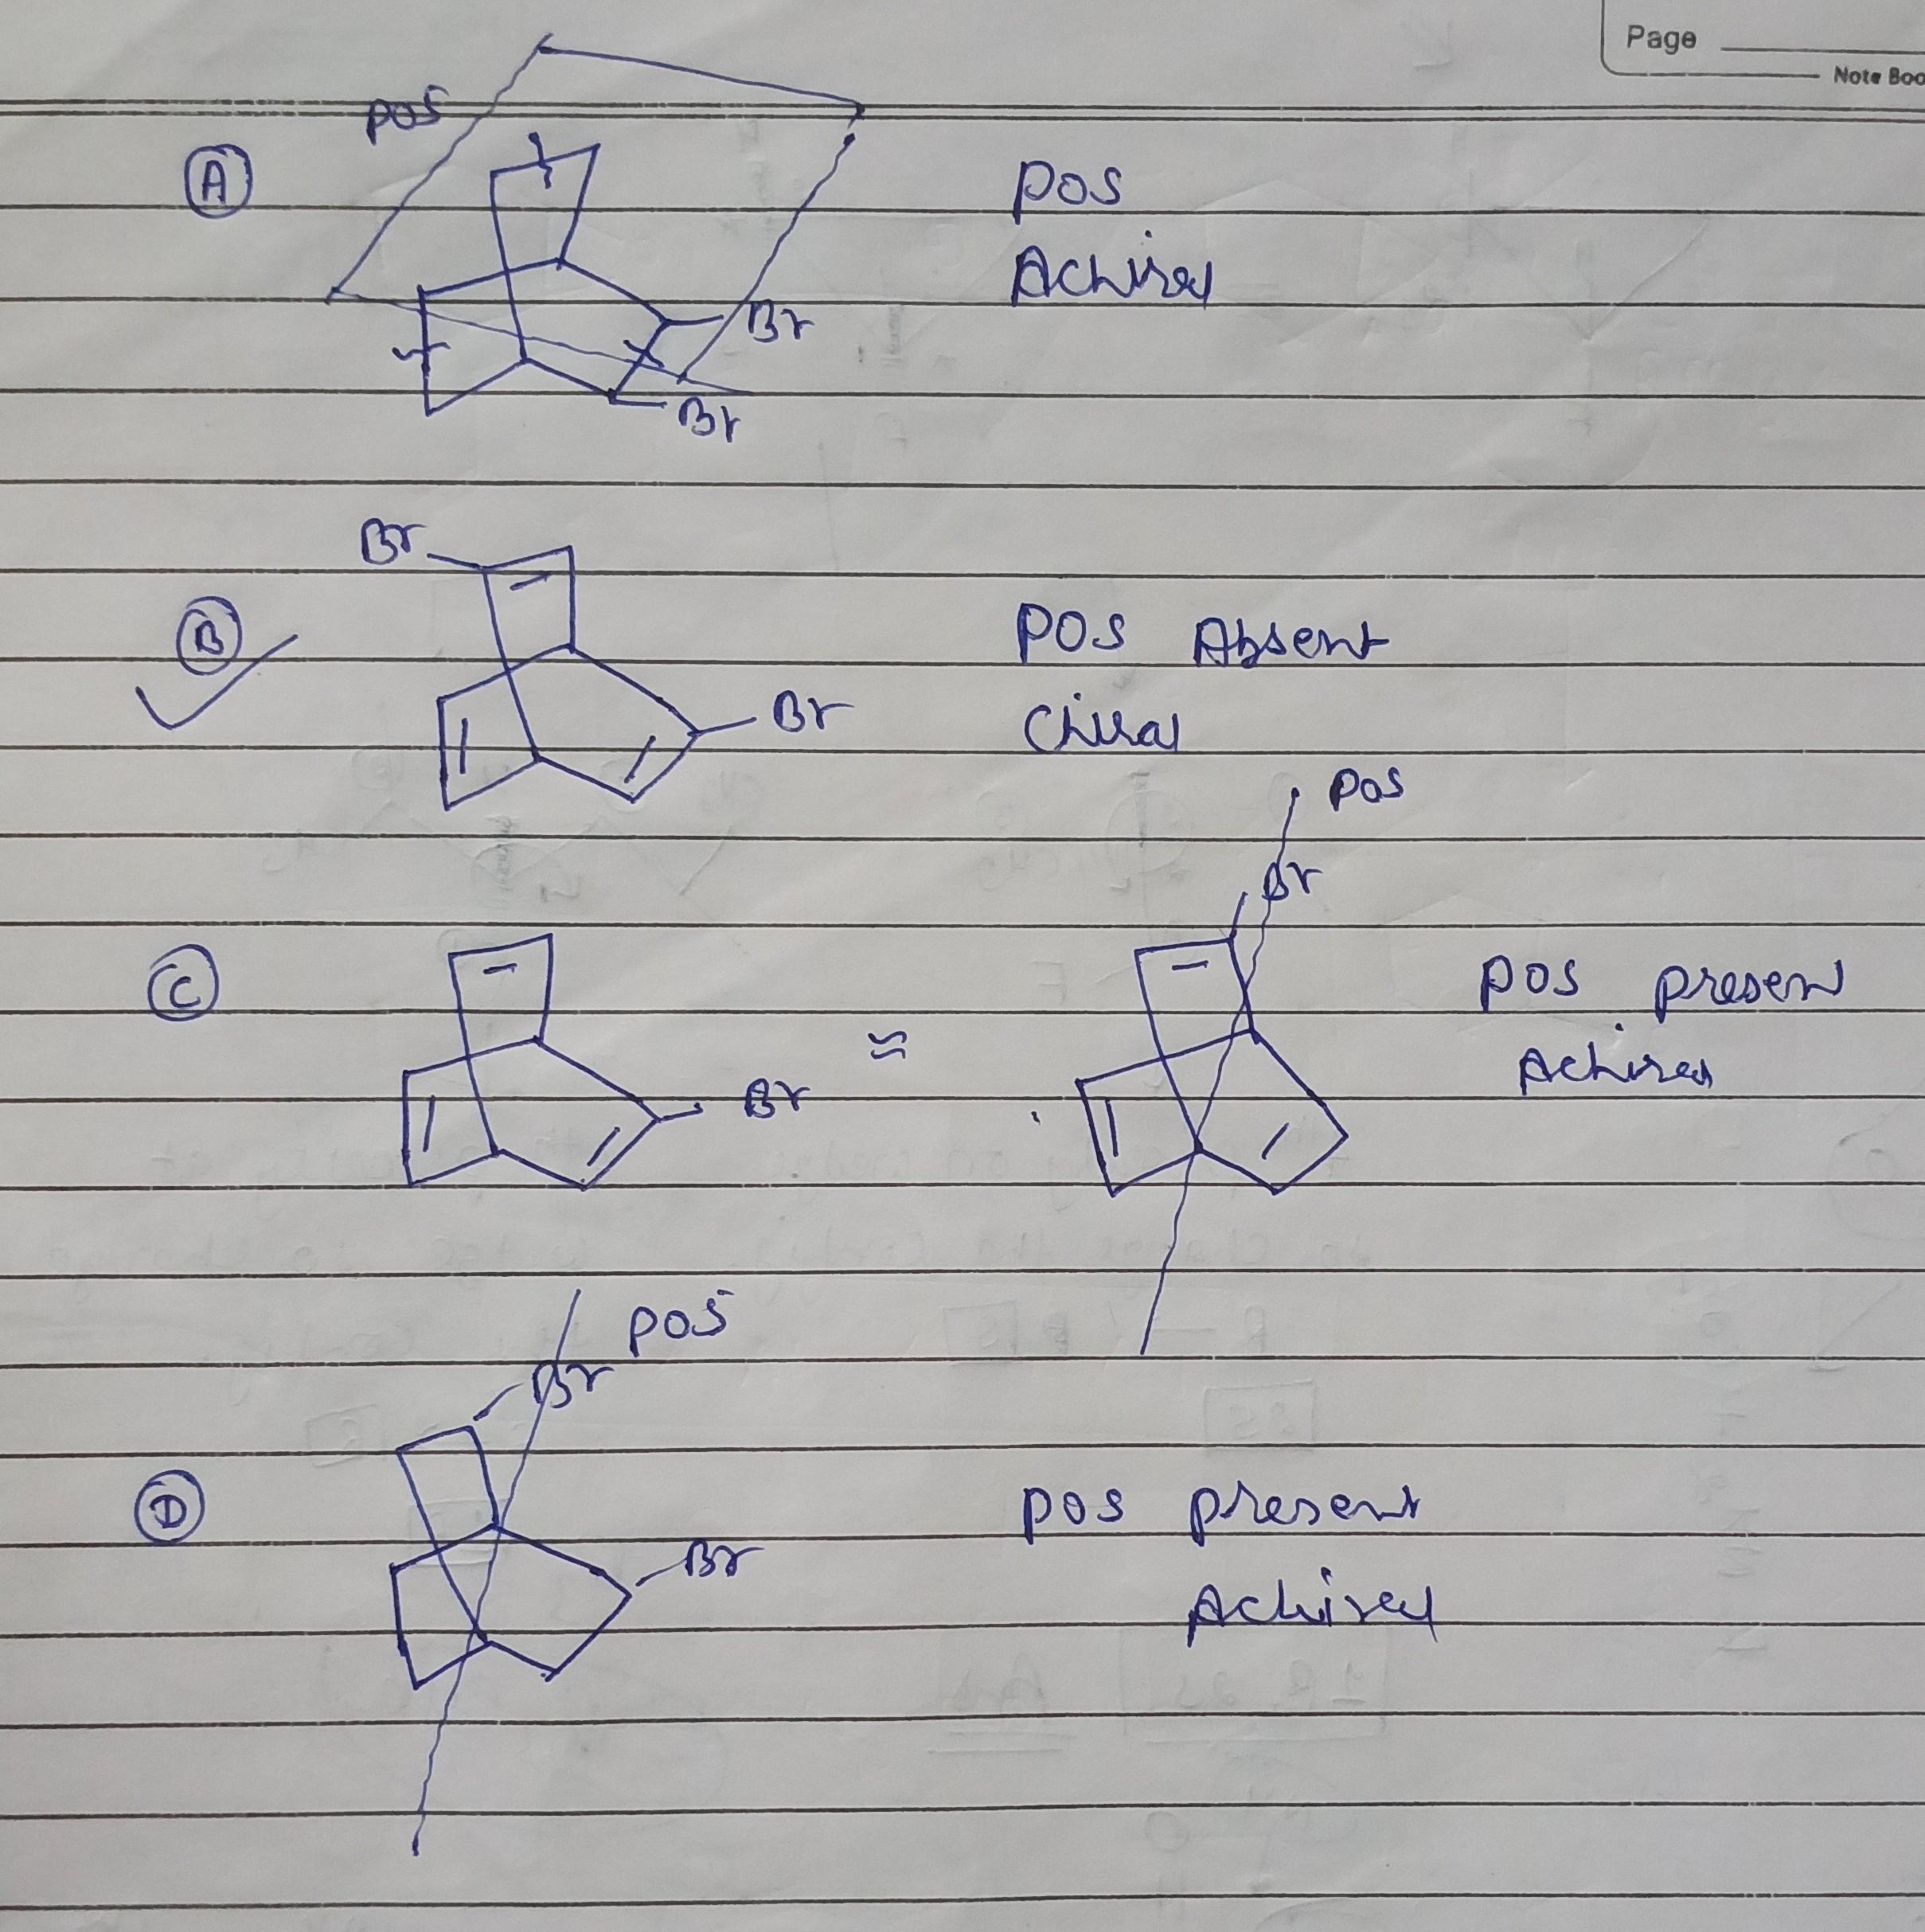 Page
Note Boo
pos
A
pos
Achiral
Br
Br
Br
B
pos Absent
Br
Chiral
pos
Br
C
pos present
Br
≈
Achiral
pos
Br
D
pos present
Br
Achiral